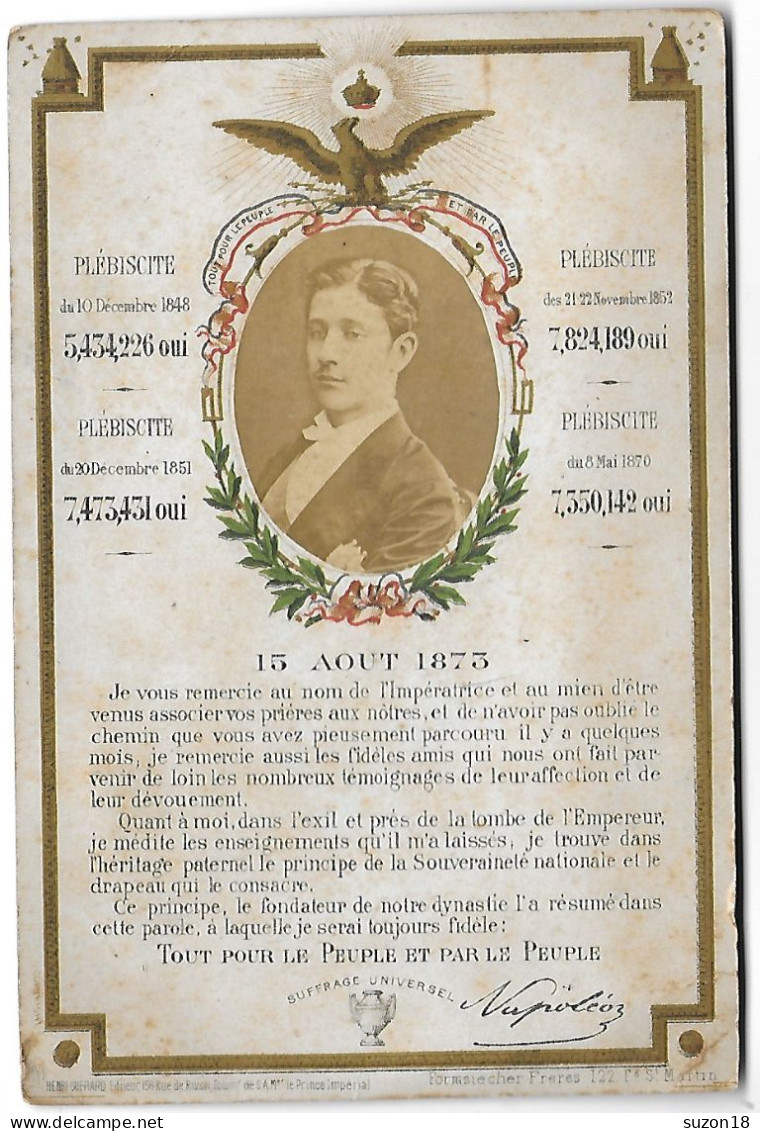 TOUT POUR LE PEUPLE ET PAR LE PEUPLE
PLÉBISCITE
du 10 Décembre 1848
5,434,226 oui
PLÉBISCITE
du 20 Décembre 1851
7,473,431 oui
PLÉBISCITE
des 21 22 Novembre 1852
7,824,189 oui
PLÉBISCITE
du 8 Mai 1870
7,350,142 oui
15 AOUT 1873
Je vous remercie au nom de l'Impératrice et au mien d'être
venus associer vos prières aux nôtres, et de n'avoir pas oublié le
chemin que vous avez pieusement parcouru il y a quelques
mois; je remercie aussi les fidèles amis qui nous ont fait par-
venir de loin les nombreux témoignages de leur affection et de
leur dévouement.
Quant à moi, dans l'exil et près de la tombe de l'Empereur,
je médite les enseignements qu'il m'a laissés; je trouve dans
l'héritage paternel le principe de la Souveraineté nationale et le
drapeau qui le consacre.
Ce principe, le fondateur de notre dynastie l'a résumé dans
cette parole, à laquelle je serai toujours fidèle:
TOUT POUR LE PEUPLE ET PAR LE PEUPLE
SUFFRAGE UNIVERSEL
Napoléon
HENRI Editeur 156 Rue de Rivoli, de S.A. le Prince Impérial
Formstecher Frères 122, Fg St Martin
delcampe.net
suzon18